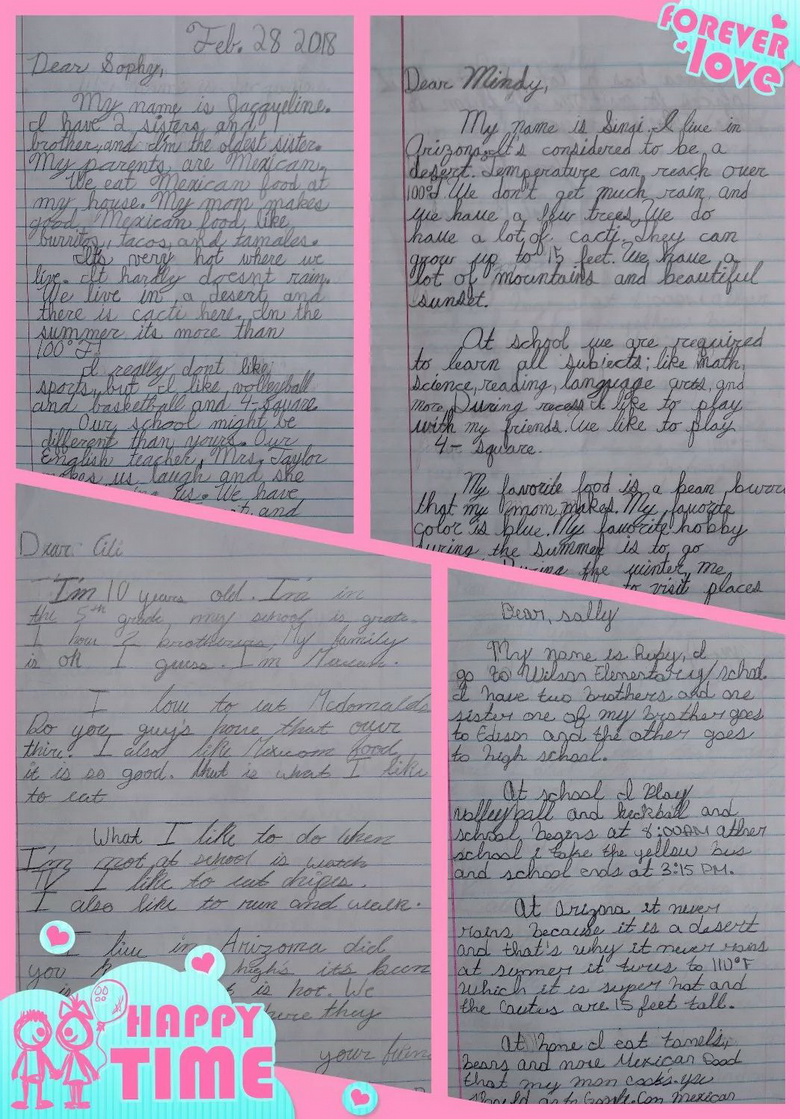 Feb. 28 2018
Dear Sophy,
My name is Jacqueline.
I have 2 sisters and 1
brother, and I'm the oldest sister.
My parents are Mexican.
We eat Mexican food at
my house. My mom makes
good Mexican food like
burritos, tacos and tamales.
It's very hot where we
live. It hardly doesnt rain.
We live in a desert and
there is cacti here. In the
summer its more than
100°F!
I really dont like
sports, but I like volleyball
and basketball and 4-square.
Our school might be
different than yours. Our
English teacher, Mrs. Taylor
makes us laugh and she
us. We have
and
FOREVER
love
Dear Mindy,
My name is Singi. I live in
Arizona. It's considered to be a
desert. Temperature can reach over
100°F. We don't get much rain, and
we have a few trees. We do
have a lot of cacti. They can
grow up to 15 feet. We have a
lot of mountains and beautiful
sunset.
At school we are required
to learn all subjects; like math,
science, reading, language arts, and
more. During recess I like to play
with my friends. We like to play
4- square.
My favorite food is a bean
that my mom makes. My favorite
color is blue. My favorite hobby
during the summer is to go
During the winter, me
to visit places
Dear: Cili
I'm 10 years old. I'm in
the 5th grade, my school is
I have 2 brotheress, My family
is ok I guess. I'm Mexican.
I love to eat Mcdonalds
Do you guy's have that over
thire. I also like Mexicom food
it is so good. that is what I like
to eat
What I like to do when
I'm not at school is watch
TV I like to eat chipes.
I also like to run and walk.
I live in Arizoma did
you highs it's been
is hot. We
here they
your
HAPPY
TIME
Dear, sally
My name is Ruby, I
go to Wilson Elementariy/school.
I have two brothers and one
sister one of my brother goes
to Edison and the other goes
to high school.
At school I play
volleyball and kickball and
school begins at 8:00AM after
school I take the yellow bus
and school ends at 3:15 PM.
At Arizona it never
rains because it is a desert
and that's why it never rains
at summer it turns to 110°F
which it is super hot and
the Cactus are 15 feet tall.
At home I eat tamels,
beans and more Mexican food
that my mom cooks. you
should go to Google. Com Mexican